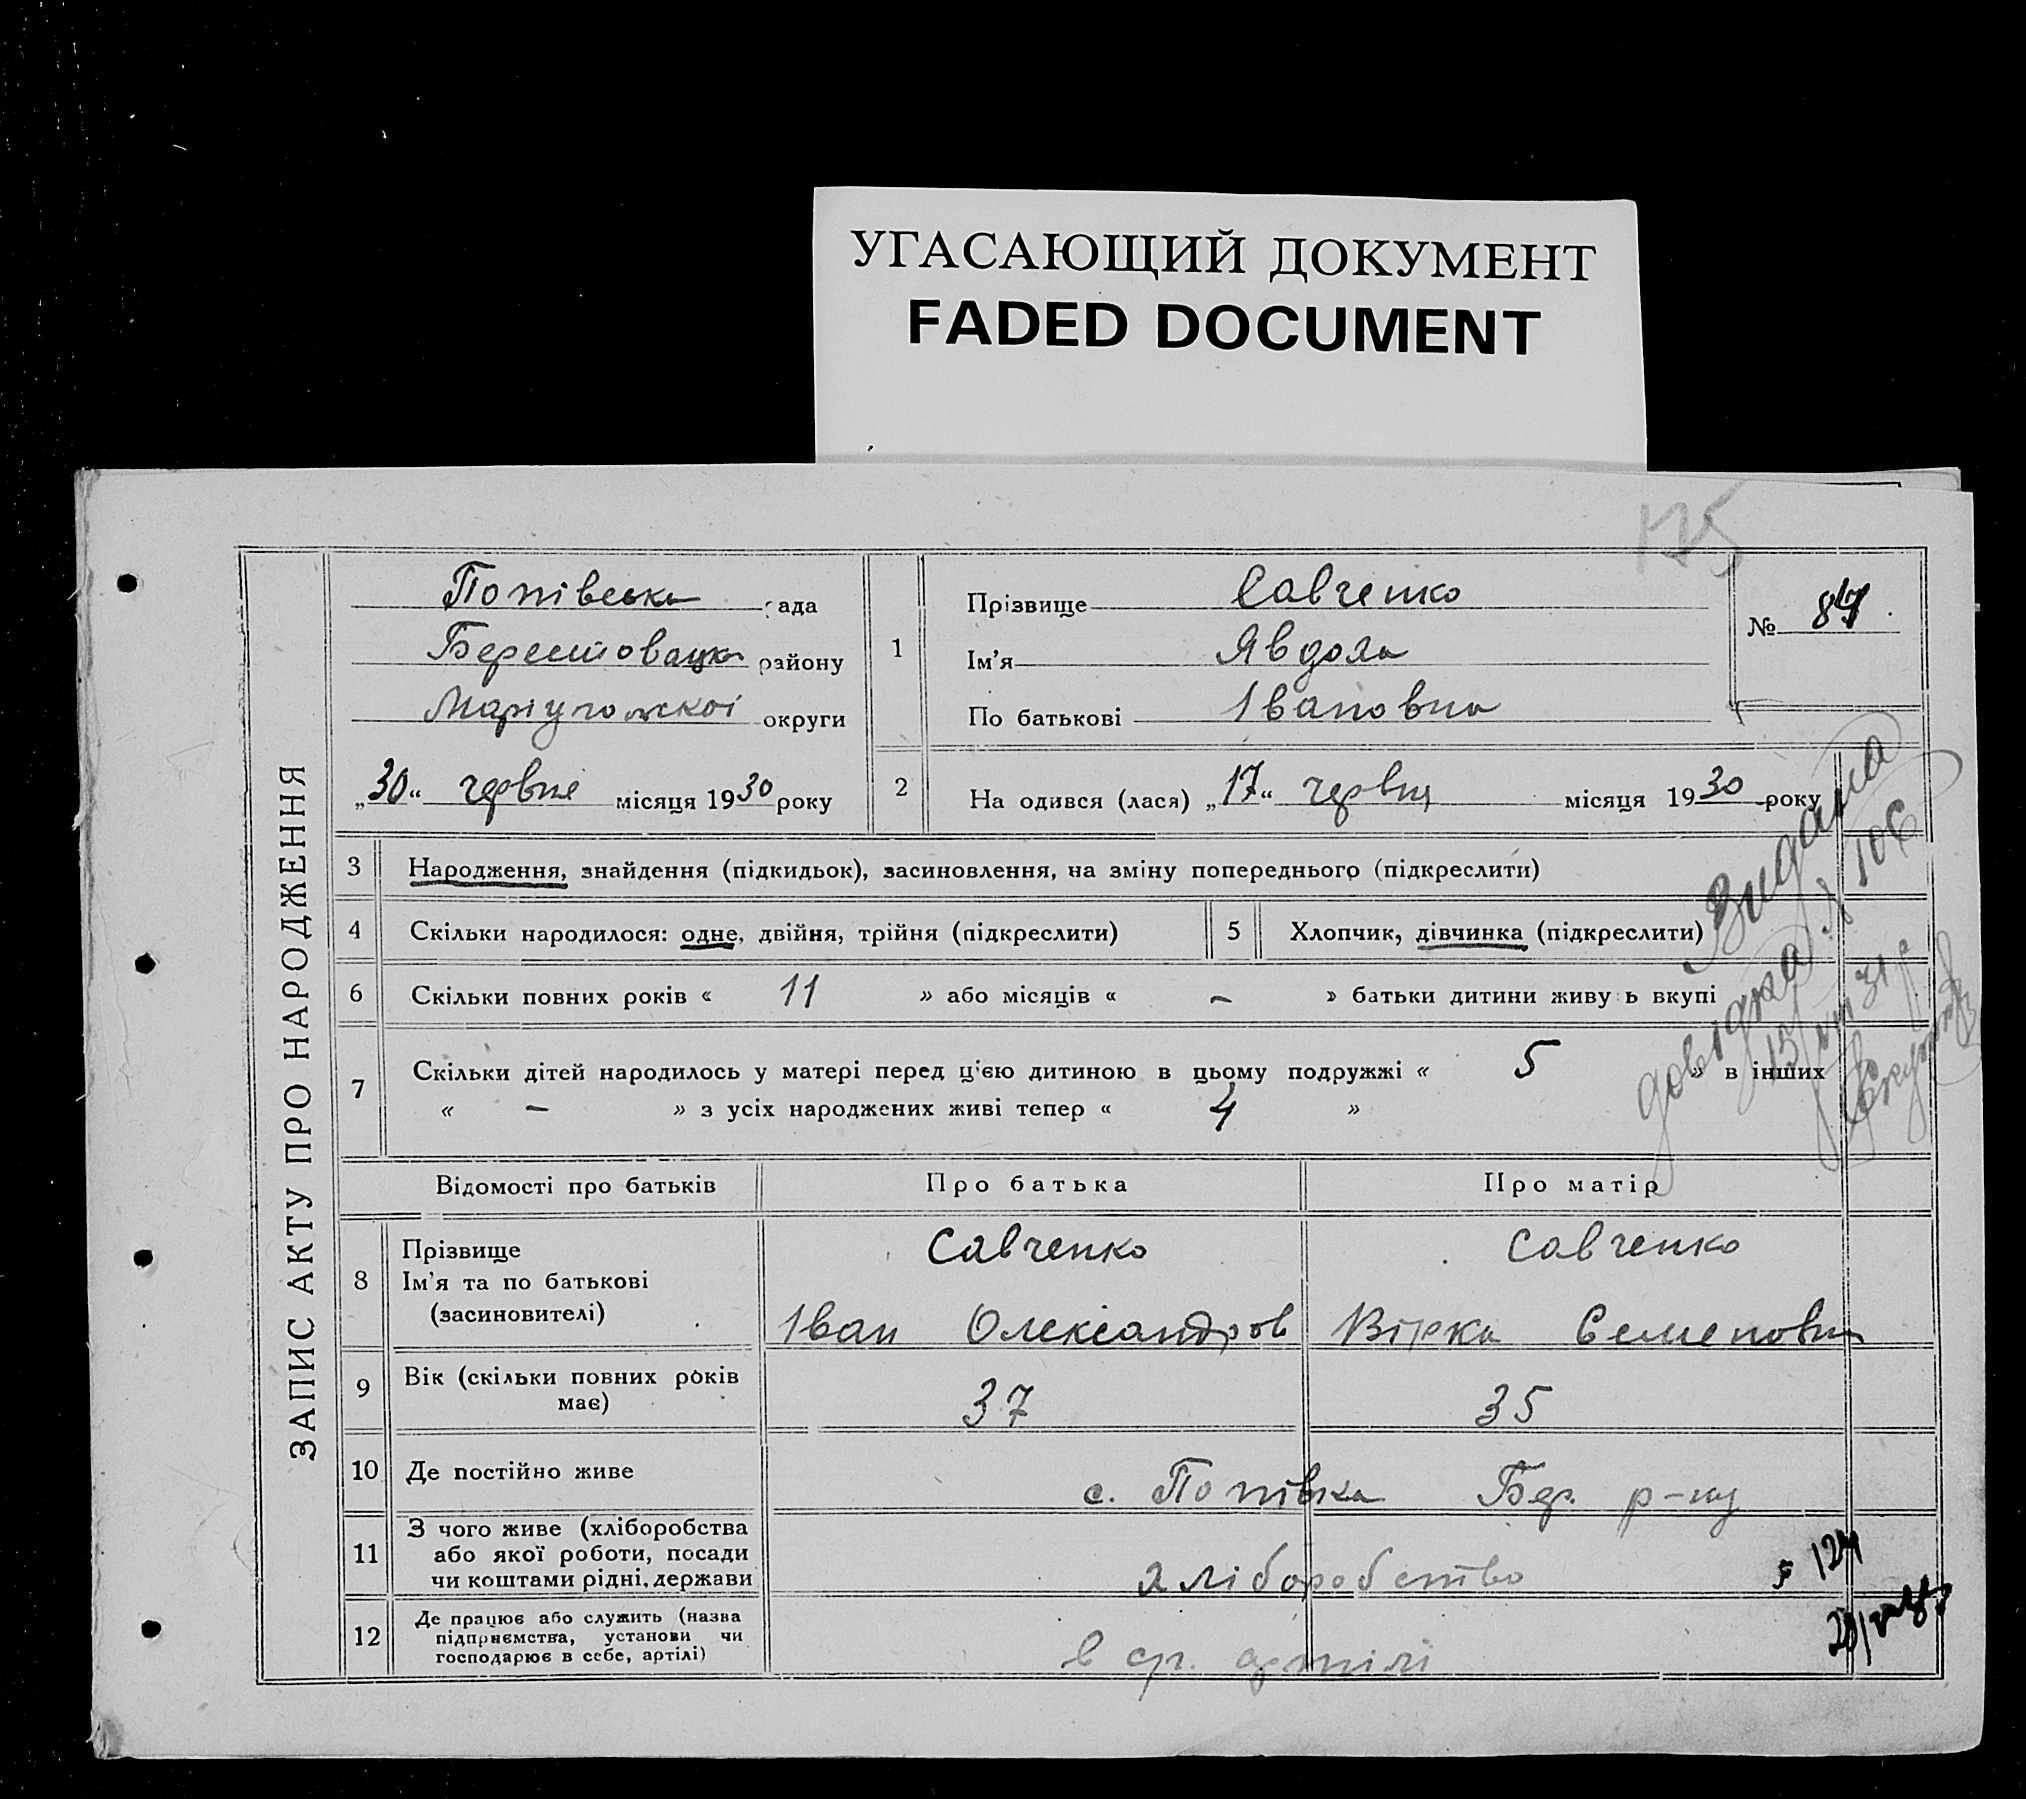 УГАСАЮЩИЙ ДОКУМЕНТ
FADED DOCUMENT
175
ЗАПИС АКТУ ПРО НАРОДЖЕННЯ
Попівська рада
Берестовецьк району
Маріупольскої округи
„30“ червня місяця 1930 року
1
Прізвище Савченко
Ім'я Явдоха
По батькові Івановна
№ 84
2
На одився (лася) „17“ червня місяця 1930 року
3 Народження, знайдення (підкидьок), засиновлення, на зміну попереднього (підкреслити)
4 Скільки народилося: одне, двійня, трійня (підкреслити)
5 Хлопчик, дівчинка (підкреслити)
6 Скільки повних років « 11 » або місяців « – » батьки дитини живу ь вкупі
7 Скільки дітей народилось у матері перед ц'єю дитиною в цьому подружжі « 5 » в інших
« – » з усіх народжених живі тепер « 4 »
Видана
довідка № 106
15/VII 31 р
Відомості про батьків Про батька Про матір
8 Прізвище
Ім'я та по батькові
(засиновителі)
Савченко
Іван Олександров
Савченко
Вірка Семеновна
9 Вік (скільки повних років
має)
37 35
10 Де постійно живе с. Попівка Бер. р-ну
11 З чого живе (хліборобства
або якої роботи, посади
чи коштами рідні, держави
хліборобство
12 Де працює або служить (назва
підприємства, установи чи
господарює в себе, артілі)
в ср. артілі